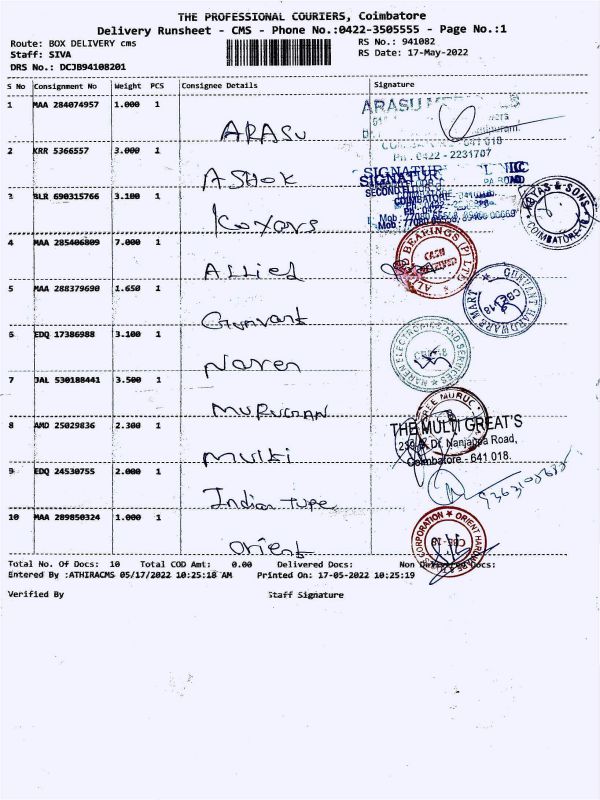 THE PROFESSIONAL COURIERS, Coimbatore
Delivery Runsheet - CMS - Phone No.:0422-3505555 - Page No.:1
Route: BOX DELIVERY cms RS No.: 941082
Staff: SIVA RS Date: 17-May-2022
DRS No.: DCJB94108201
S No Consignment No Weight PCS Consignee Details Signature
1 MAA 284074957 1.000 1 ARASU
ARASU
COIMBATORE 641 018
Ph : 0422 - 2231707
2 KRR 5366557 3.000 1 ASHOK
SIGNATURE CLINIC
SECOND FLOOR
COIMBATORE
3 BLR 690315766 3.100 1
VYAS & SONS
COIMBATORE
4 MAA 285406809 7.000 1 ALLied
ALLIED BEARINGS (P) LTD
CASH RECEIVED
5 MAA 288379690 1.650 1 Gunvant
GUNVANT HARDWARE MART
CBE-18
6 EDQ 17386988 3.100 1 Naren
NAREN ELECTRONICS AND SERVICES
7 JAL 530188441 3.500 1 MURUGAN
8 AMD 25029836 2.300 1 Multi
THE MULTI GREAT'S
Dr. Nanjappa Road,
Coimbatore - 641 018.
9 EDQ 24530755 2.000 1 Indian type
10 MAA 289850324 1.000 1 orient
ORIENT HARDWARE & CORPORATION
CBE-18
Total No. Of Docs: 10 Total COD Amt: 0.00 Delivered Docs: Non Delivered Docs:
Entered By :ATHIRACMS 05/17/2022 10:25:18 AM Printed On: 17-05-2022 10:25:19
Verified By Staff Signature